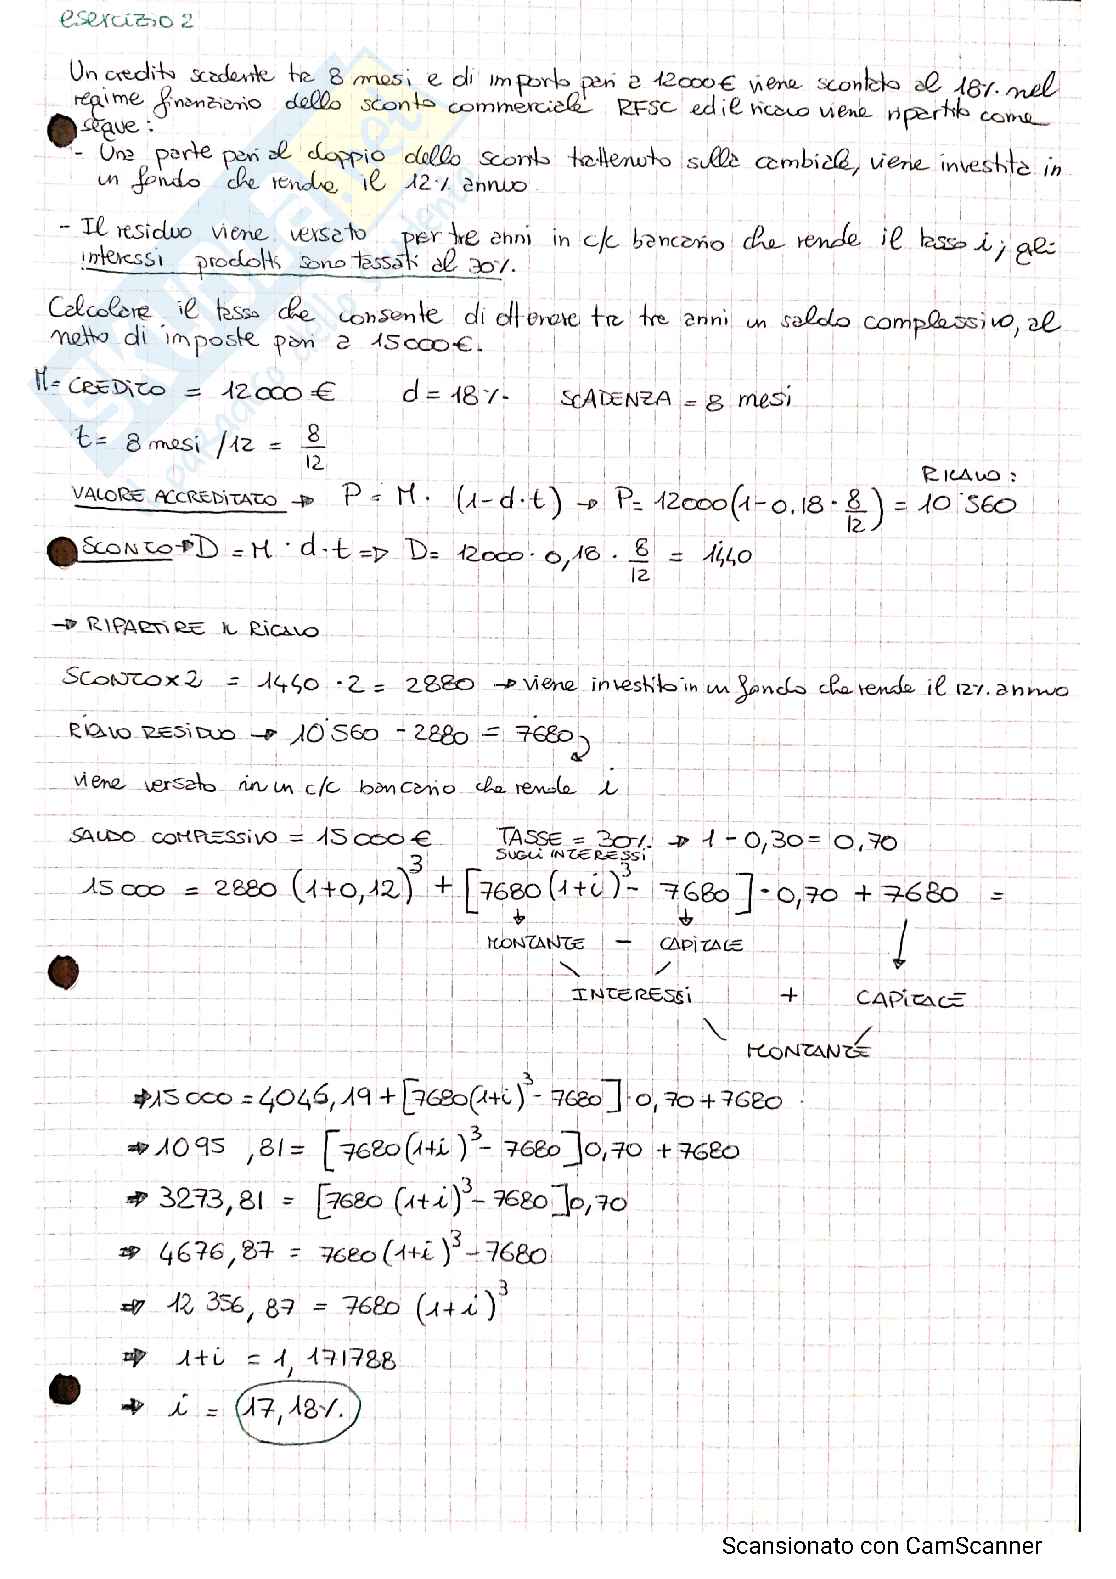 esercizio 2
Un credito scadente tra 8 mesi e di importo pari a 12000€ viene scontato al 18% nel
regime finanziario dello sconto commerciale RFSC ed il ricavo viene ripartito come
segue:
- Una parte pari al doppio dello sconto trattenuto sulla cambiale, viene investita in
un fondo che rende il 12% annuo
- Il residuo viene versato per tre anni in c/c bancario che rende il tasso i; gli
interessi prodotti sono tassati al 30%.
Calcolare il tasso che consente di ottenere tra tre anni un saldo complessivo, al
netto di imposte pari a 15000€.
M = CREDITO = 12000€ d = 18% SCADENZA = 8 mesi
t = 8 mesi /12 = 8/12
RICAVO:
VALORE ACCREDITATO → P = M · (1-d·t) → P = 12000(1-0.18 · 8/12) = 10'560
SCONTO → D = M · d · t => D = 12000 · 0,18 · 8/12 = 1440
→ RIPARTIRE IL RICAVO
SCONTO x 2 = 1440 · 2 = 2880 → viene investito in un fondo che rende il 12% annuo
RICAVO RESIDUO → 10'560 - 2880 = 7680
viene versato in un c/c bancario che rende i
SALDO COMPLESSIVO = 15000€ TASSE = 30% → 1 - 0,30 = 0,70
SUGLI INTERESSI
15000 = 2880 (1+0,12)³ + [7680(1+i)³ - 7680] · 0,70 + 7680 =
MONTANTE - CAPITALE
INTERESSI + CAPITALE
MONTANTE
⇒ 15000 = 4046,19 + [7680(1+i)³ - 7680] · 0,70 + 7680
⇒ 1095 ,81 = [7680(1+i)³ - 7680] 0,70 + 7680
⇒ 3273,81 = [7680 (1+i)³ - 7680] 0,70
⇒ 4676,87 = 7680(1+i)³ - 7680
⇒ 12 356,87 = 7680 (1+i)³
⇒ 1+i = 1,171788
⇒ i = 17,18%.
Scansionato con CamScanner